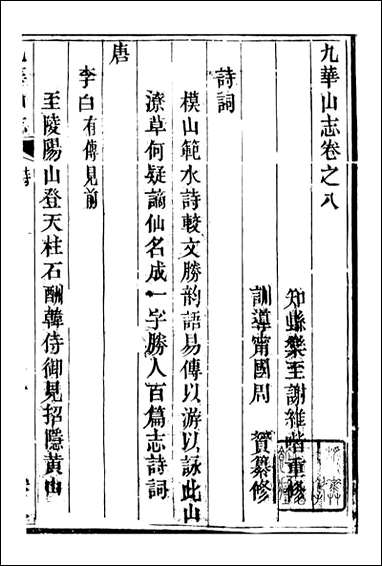 九華山志卷之八
知縣樂至謝維喈重修
訓導甯國周　贇纂修
詩詞
模山範水詩較文勝韵語易傳以游以詠此山
潦草何疑謫仙名成一字勝人百篇志詩詞
唐
李白有傳見前
至陵陽山登天柱石酬韓侍御見招隱黃山